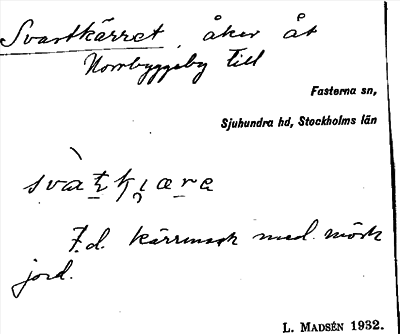 Svartkärret, åker åt
Norrbyggeby till
Fasterna sn,
Sjuhundra hd, Stockholms län
F.d. kärrmark med mörk
jord.
L. MADSÉN 1932.